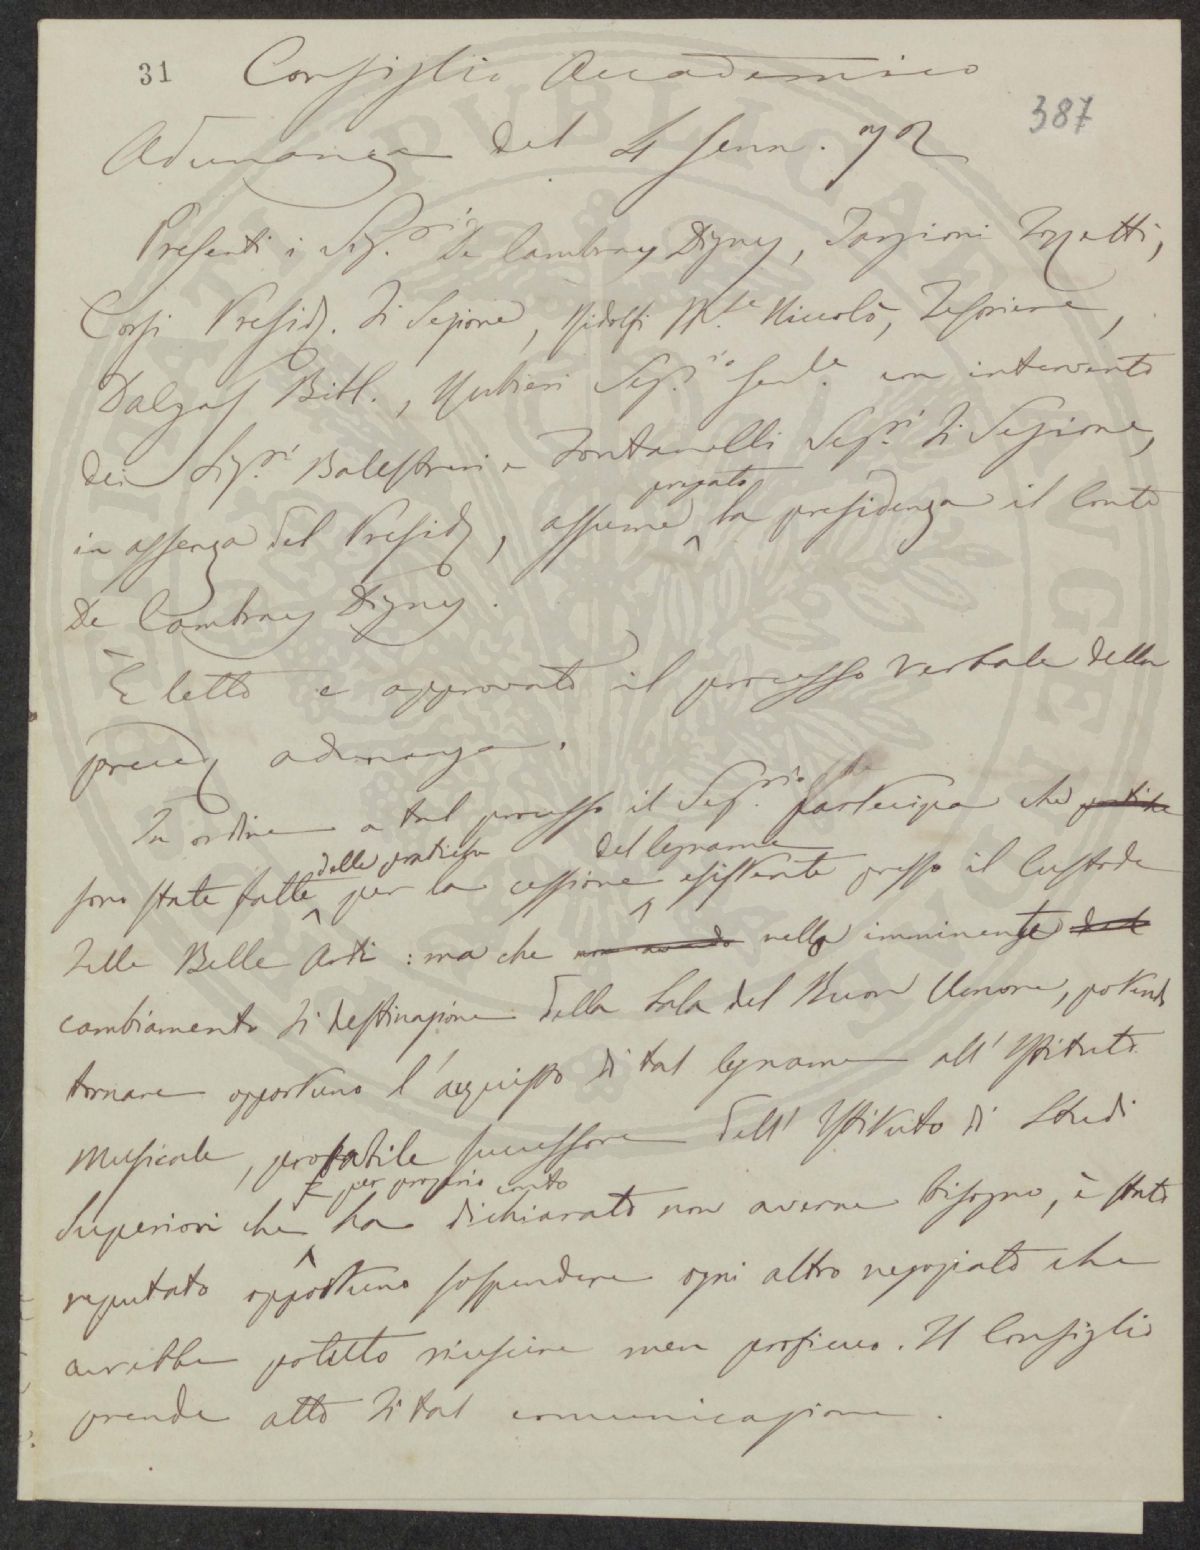 31 Consiglio Accademico
387
Adunanza del 4 Genn. 72
Presenti i Sig.ri De Cambray Digny, Targioni Tozzetti,
Corsi Presid. di Sezione, Ridolfi M.se Niccolò, Tesoriere,
Dalgas Bibl., Rubieri Seg.rio Gen.le con intervento
dei Sig.ri Balestreri e Fontanelli Seg.ri di Sezione,
in assenza del Presid, assume pregato la presidenza il Conte
De Cambray Digny.
È letto e approvato il processo verbale della
preced adunanza.
In ordine a tal processo il Seg.rio partecipa che
sono state fatte delle pratiche per la cessione del legname esistente presso il Custode
delle Belle Arti: ma che nello imminente
cambiamento di destinazione della Sala del Buon Umore, potendo
tornare opportuno l'acquisto di tal legname all'Istituto
Musicale, probabile successore dell'Istituto di Studi
Superiori che per proprio conto ha dichiarato non averne bisogno, è stato
reputato opportuno sospendere ogni altro negoziato che
avrebbe potuto riuscire men proficuo. Il Consiglio
prende atto di tal comunicazione.